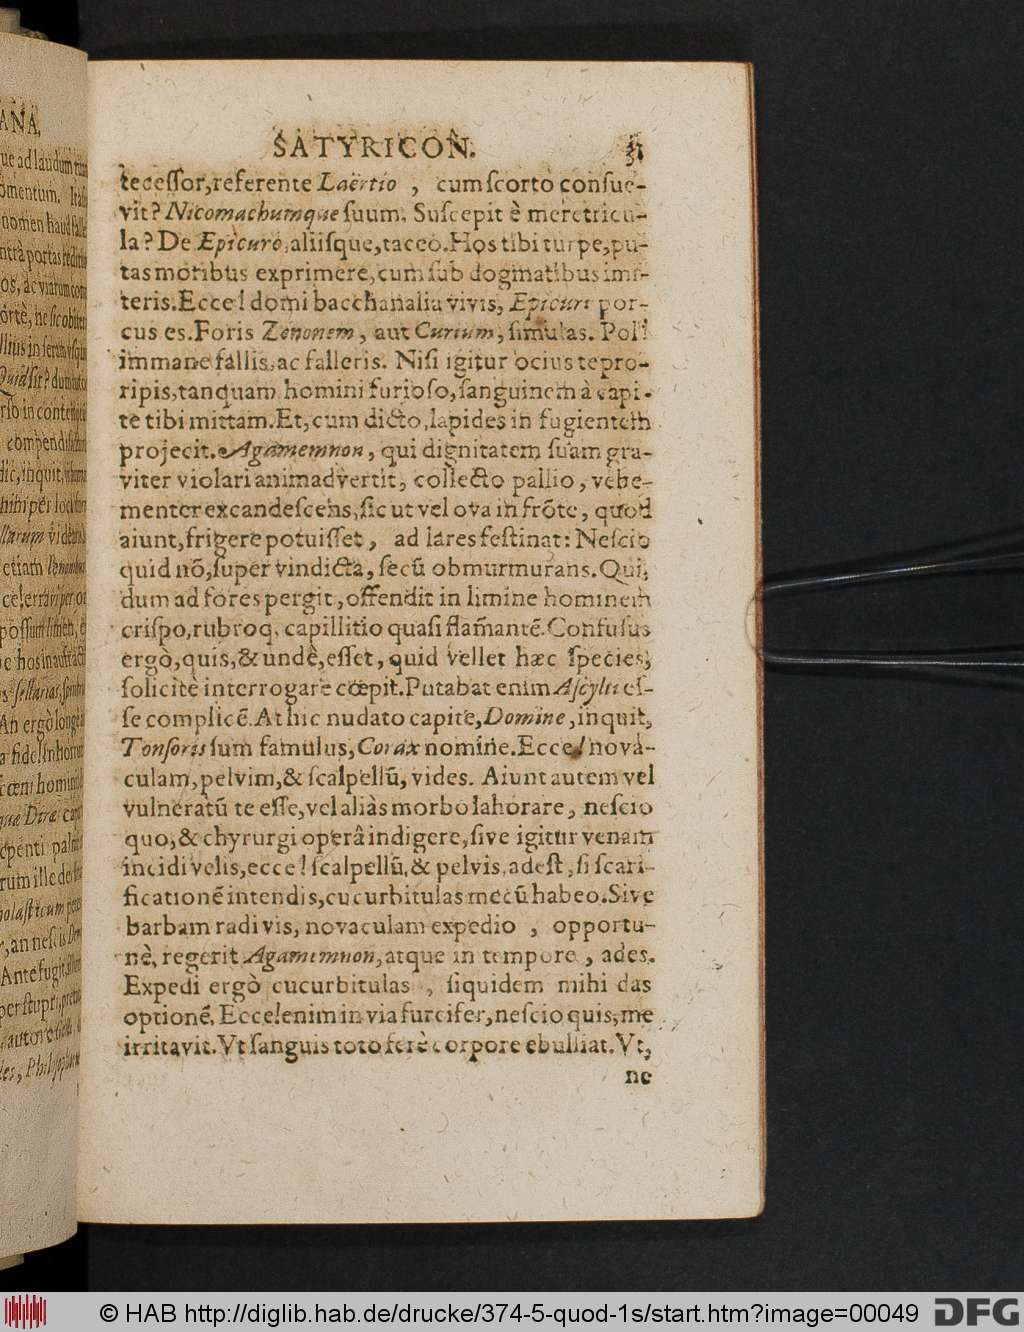 SATYRICON.
tecessor, referente Laërtio , cum scorto consue-
vit? Nicomachumque suum. Suscepit è meretricu-
la? De Epicuro, aliisque, taceo. Hos tibi turpe, pu-
tas moribus exprimere, cum sub dogmatibus imi-
teris. Ecce! domi bacchanalia vivis, Epicuri por-
cus es. Foris Zenonem, aut Curium, simulas. Pol!
immane fallis, ac falleris. Nisi igitur ocius te pro-
ripis, tanquam homini furioso, sanguinem à capi-
te tibi mittam. Et, cum dicto, lapides in fugientem
projecit. Agamemnon, qui dignitatem suam gra-
viter violari animadvertit, collecto pallio, vehe-
menter excandescens, sic ut vel ova in frõte, quod
aiunt, frigere potuisset, ad lares festinat: Nescio
quid nõ, super vindicta, secũ obmurmurans. Qui,
dum ad fores pergit, offendit in limine hominem
crispo, rubroq; capillitio quasi flam̃antẽ. Confusus
ergò, quis, & undè, esset, quid vellet hæc species,
solicitè interrogare cœpit. Putabat enim Ascylti es-
se complicẽ. At hic nudato capite, Domine, inquit,
Tonsoris sum famulus, Corax nomine. Ecce! nova-
culam, pelvim, & scalpellũ, vides. Aiunt autem vel
vulneratũ te esse, vel aliàs morbo laborare, nescio
quo, & chyrurgi operâ indigere, sive igitur venam
incidi velis, ecce! scalpellũ, & pelvis, adest, si scari-
ficationẽ intendis, cucurbitulas mecũ habeo. Sive
barbam radi vis, novaculam expedio , opportu-
nè, regerit Agamemnon, atque in tempore, ades.
Expedi ergò cucurbitulas , siquidem mihi das
optionẽ, Ecce! enim in via furcifer, nescio quis, me
irritavit. Vt sanguis toto ferè corpore ebulliat. Vt,
ne
© HAB http://diglib.hab.de/drucke/374-5-quod-1s/start.htm?image=00049
DFG